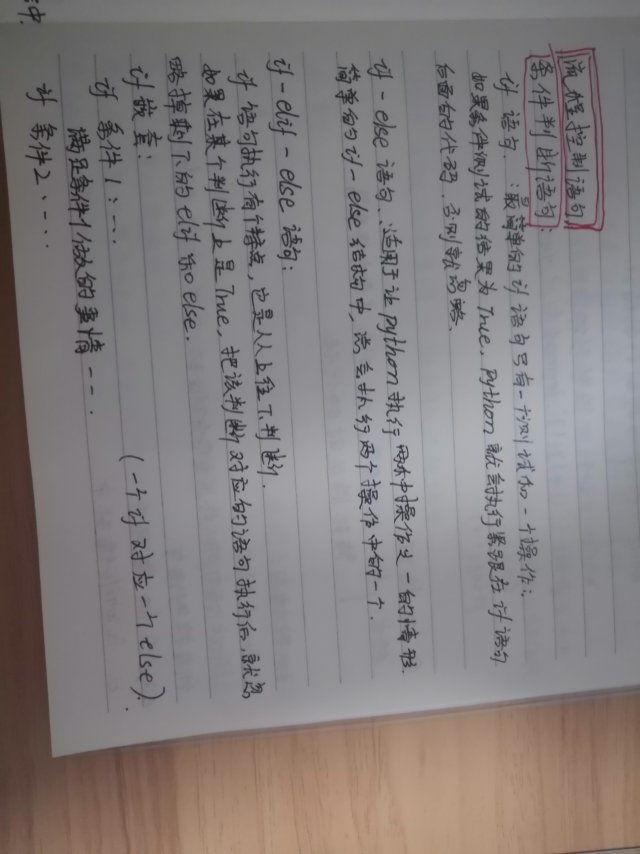 中.
流程控制语句
条件判断语句:
if 语句 : 最简单的 if 语句只有一个测试和一个操作;
如果条件测试的结果为 True, python 就会执行紧跟在 if 语句
后面的代码, 否则就忽略.
if - else 语句 : 适用于让 python 执行两种操作之一的情形
简单的 if - else 结构中, 总会执行两个操作中的一个.
if - elif - else 语句:
if 语句执行有个特点, 它是从上往下判断.
如果在某个判断上是 True, 把该判断对应的语句执行后, 就忽
略掉剩下的 elif 和 else.
if 嵌套: (一个 if 对应一个 else).
if 条件1: ...
满足条件1做的事情 ....
if 条件2 ....